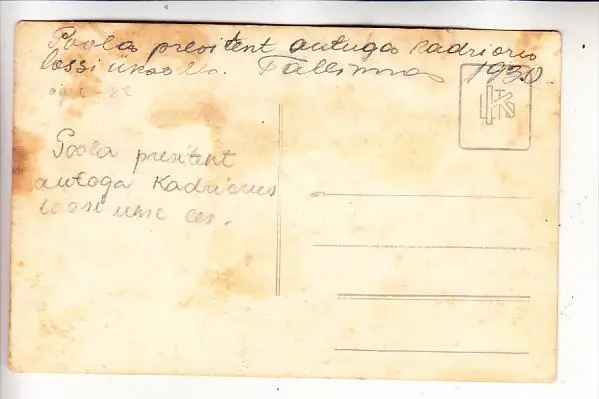 Poola presitent autuga Kadrioru
lossi ukse ees. Tallinnas 1930
Poola presitent
autoga Kadriorus
loosi ukse ees.